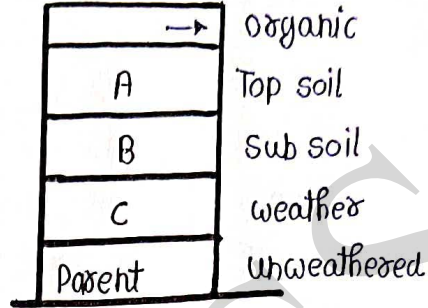 → organic
A Top soil
B Sub soil
C weather
Parent unweathered